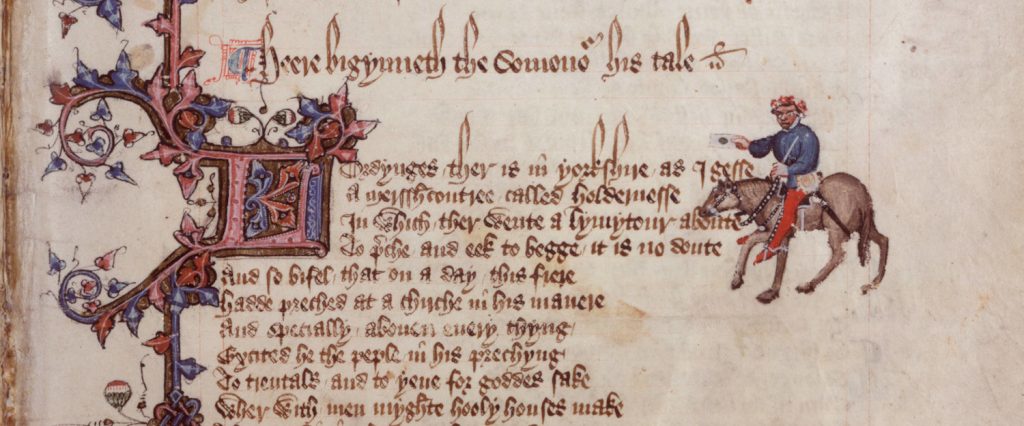 Heere bigynneth the Somonor his tale
Lordynges ther is in yorkshire as I gesse
A mersshcontree called holdernesse
In which ther wente a lymytour aboute
To pche and eek to begge it is no doute
And so bifel that on a day this frere
Hadde preched at a chirche in his manere
And specially abouen euery thyng
Excited he the peple in his prechyng
To trentals and to yeue for goddes sake
Wher with men myghte hooly houses make